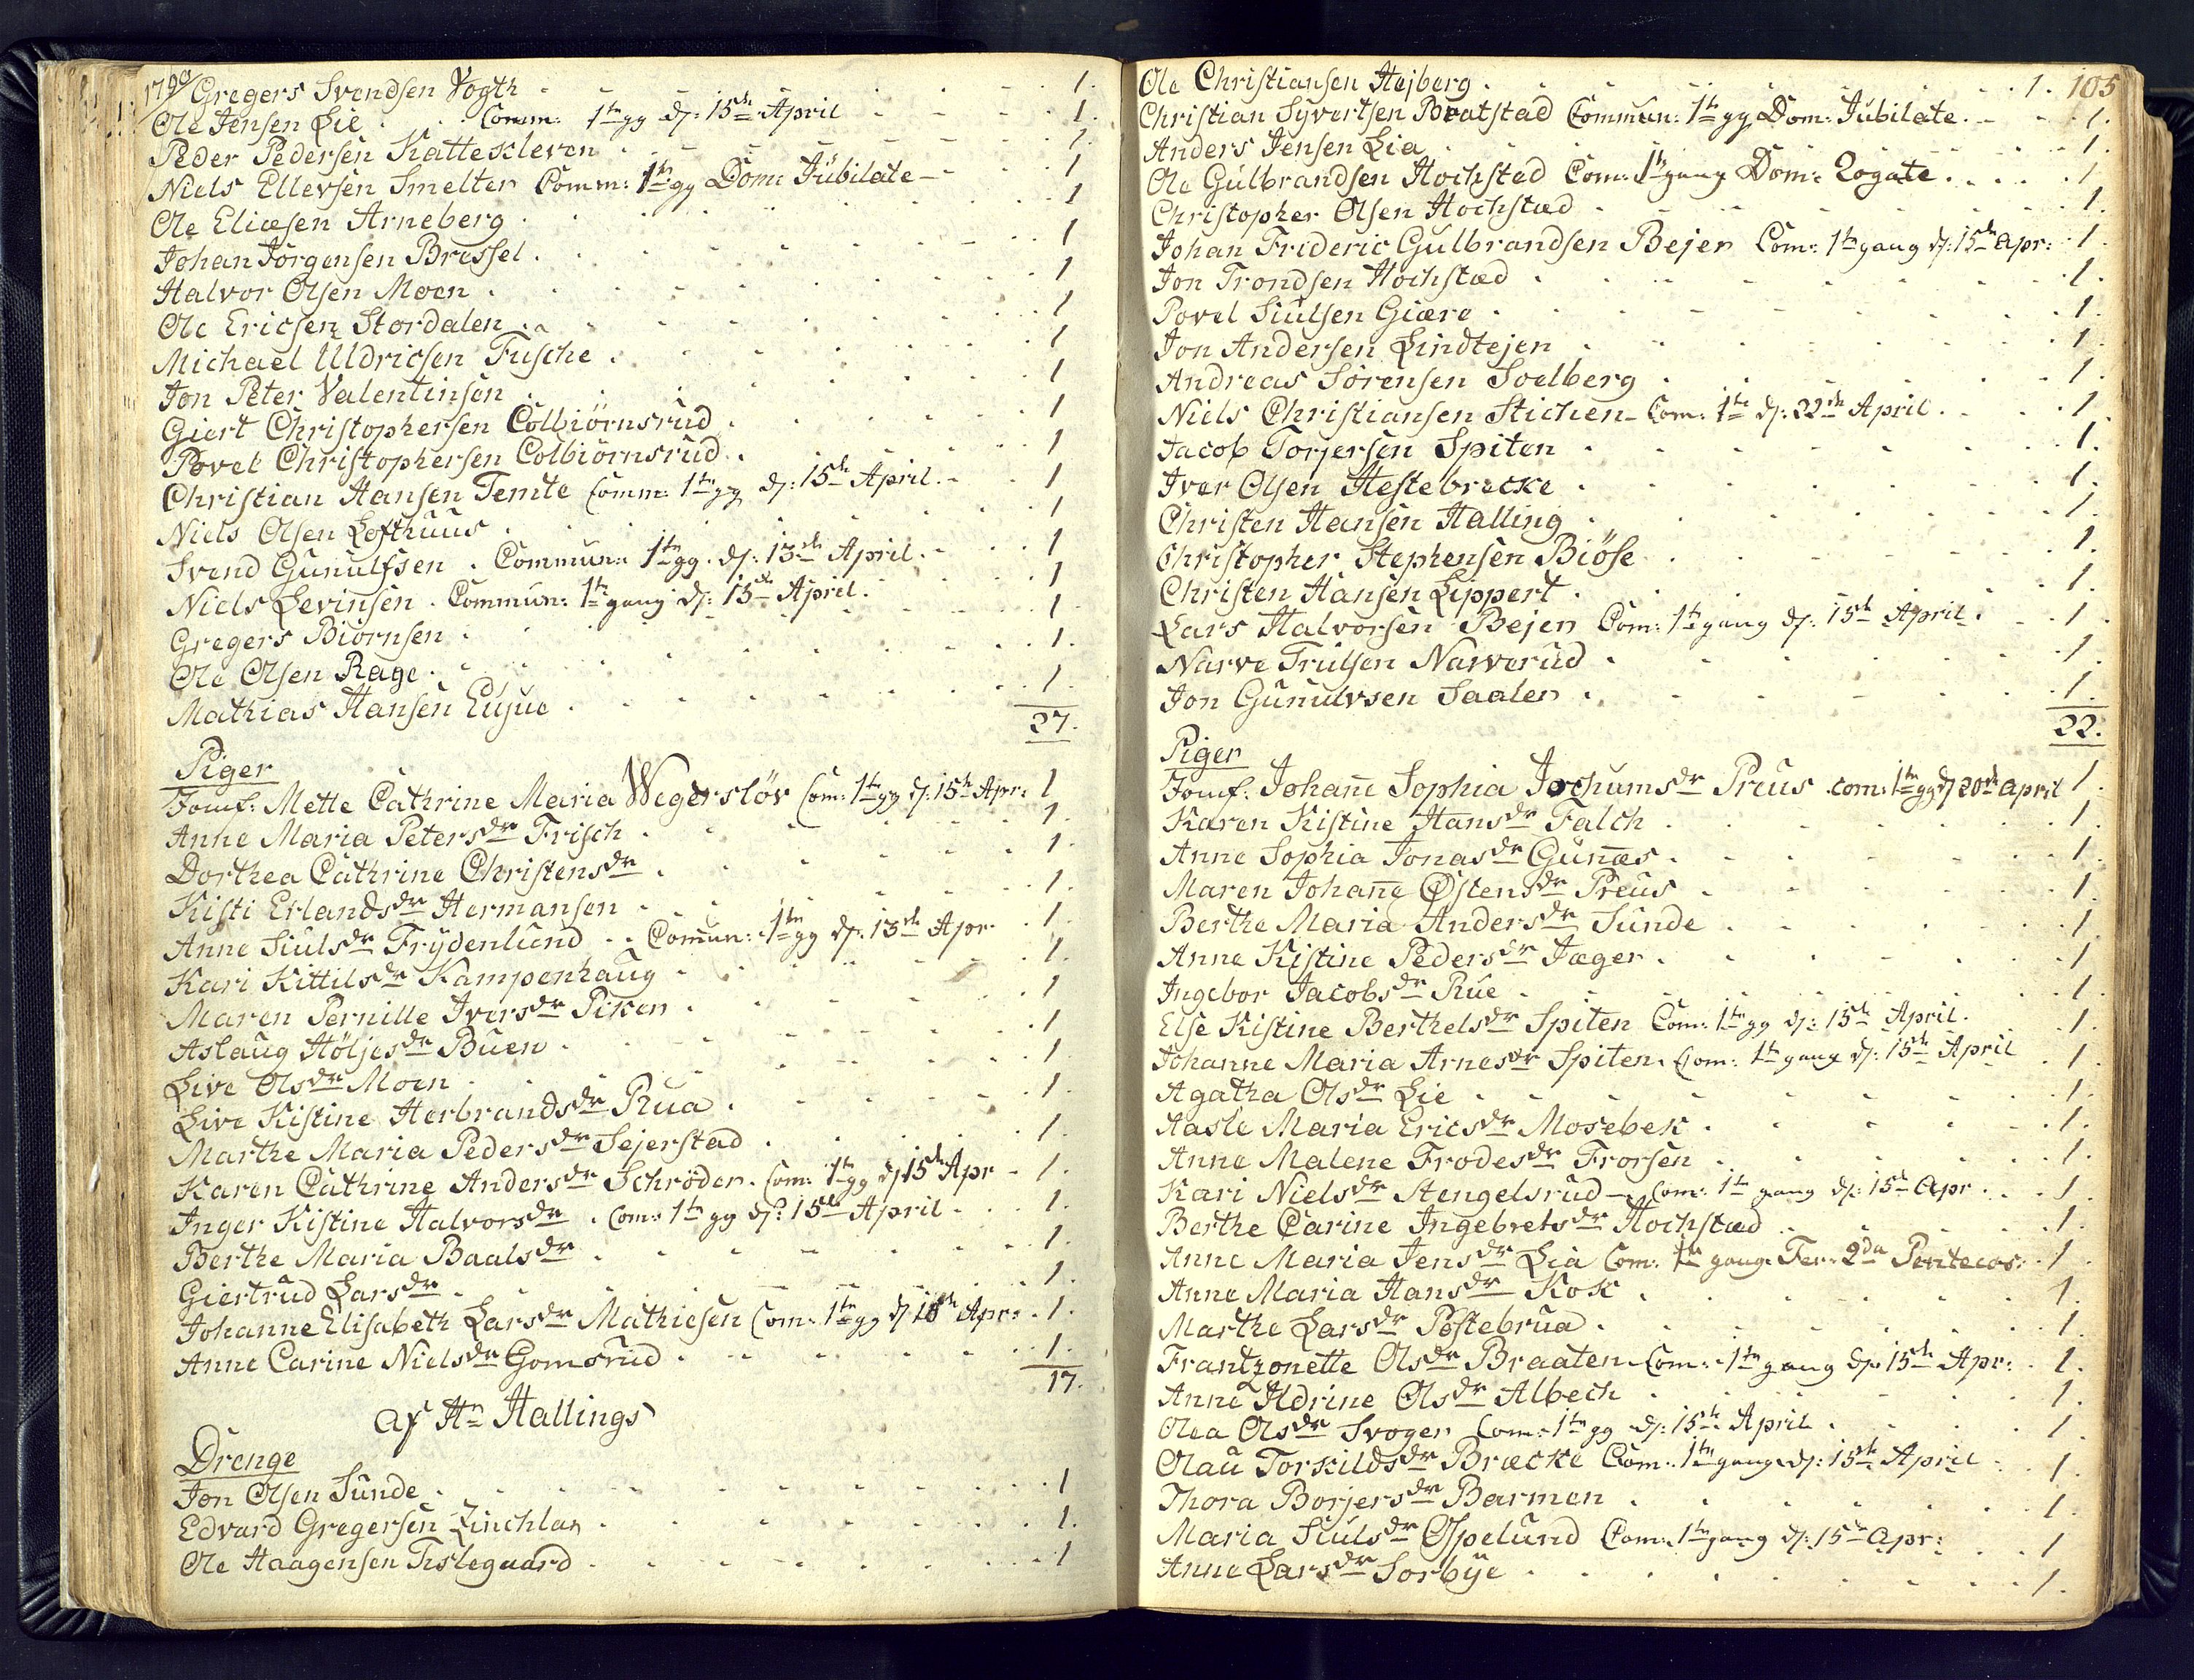 1790/ Gregers Svendsen Vogth 1.
Ole Jensen Lie Comm: 1te gg d: 15de April 1.
Peder Pedersen Katteskleven 1.
Niels Ellevsen Smelter Comm: 1te gg Dom: Jubilate 1
Ole Eliæsen Arneberg 1
Johan Jörgensen Bressel 1
Halvor Olsen Moen 1
Ole Ericsen Stordalen 1
Michael Uldricsen Fusche 1
Jon Peter Valentinsen 1
Giert Christophersen Colbiörnsrud 1
Povel Christophersen Colbiörnsrud 1
Christian Hansen Temte Comm: 1te gg d: 15de April 1
Niels Olsen Lofthuus 1
Svend Gunulfsen Commun: 1te gg d: 15de April 1
Niels Levinsen Commun: 1te gang d: 15de April 1
Gregers Biörnsen 1
Ole Olsen Rage 1.
Mathias Hansen 1.
27.
Piger
Jomf: Mette Cathrine Maria Wegersløv Com: 1te gg d: 15de Apr: 1
Anne Maria Petersdr Frisch 1.
Dorthea Cathrine Christensdr 1.
Kisti Erlandsdr Hermansen 1.
Anne Siulsdr Frydenlund Comun: 1te gg d: 15de Apr 1.
Kari Kittilsdr Kampenhaug 1.
Maren Pernille Iversdr Piken 1
Aslaug Höljesdr Buen 1
Live Olsdr Moen 1
Live Kistine Herbrandsdr Rua 1.
Marthe Maria Pedersdr Sejerstad 1.
Karen Cathrine Andersdr Schröder Com: 1te gg d 15de Apr 1.
Inger Kistine Halvorsdr Com: 1te gg d: 15de April 1.
Berthe Maria Baalsdr 1.
Giertrud Larsdr 1.
Johanne Elisabeth Larsdr Mathiesen Com: 1te gg d 15de Apr: 1.
Anne Carine Nielsdr Gomsrud 1.
17.
Af Hr Hallings
Drenge
Jon Olsen Sunde 1
Edvard Gregersen 1.
Ole Haagensen Tislegaard 1
Ole Christiansen Hejberg 1. 105
Christian Syvertsen Bratstad Commun: 1te gg Dom: Jubilate 1.
Anders Jensen Lia 1.
Ole Gulbrandsen Hochsted Com: 1te gang Dom: Rogate 1
Christopher Olsen Hochstæd 1.
Johan Frideric Gulbrandsen Bejer Com: 1te gang d: 15de Apr: 1.
Jon Trondsen Hochstæd 1.
Povel Siulsen Giære 1.
Jon Andersen Lindtejen 1.
Andreas Sörensen Soelberg 1.
Niels Christiansen Stichen Com: 1te d: 22de April 1
Jacob Torjersen Spiten 1.
Iver Olsen Hestebrecke 1.
Christen Hansen Halling 1.
Christopher Stephensen Biöse 1.
Christen Hansen Lippert 1.
Lars Halvorsen Bejer Com: 1te gang d: 15de April 1
Narve Trulsen Narverud 1.
Jon Gunulvsen Saaler 1.
22.
Piger
Jomf. Johañe Sophia Jochumsdr Preus com: 1te gg d 20de April 1.
Karen Kistine Hansdr Falch 1.
Anne Sophia Jonasdr Guñæs 1.
Maren Johañe Østensdr Preus 1.
Berthe Maria Andersdr Sunde 1
Anne Kistine Pedersdr Jæger 1
Ingebor Jacobsdr Rue 1.
Else Kistine Berthelsdr Spiten Com: 1te gg d: 15de April 1.
Johanne Maria Arnesdr Spiten Com: 1te gang d: 15de April 1.
Agatha Olsdr Lie 1.
Aasle Maria Ericsdr Mosebek 1.
Anne Malene Frodesdr Frorsen 1.
Kari Nielsdr Stengelsrud Com: 1te gang d: 15de Apr 1.
Berthe Carine Ingebretsdr Hochstæd 1.
Anne Maria Jensdr Lia Com: 1te gang Fer: 2da Pentecos: 1.
Anne Maria Hansdr Kok 1.
Marthe Larsdr Pöstebrua 1.
Frantzonette Olsdr Braaten Com: 1te gang d: 15de Apr: 1.
Anne Aldrine Olsdr Albech 1.
Olea Olsdr Svoger Com: 1te gg d: 15de April 1
Olau Torkildsdr Bræcke Com: 1te gang d: 15de April 1.
Thora Borjersdr Barmen 1.
Maria Siulsdr Ospelund Com: 1te gang d: 15de Apr: 1
Anne Larsdr Sorbye 1.